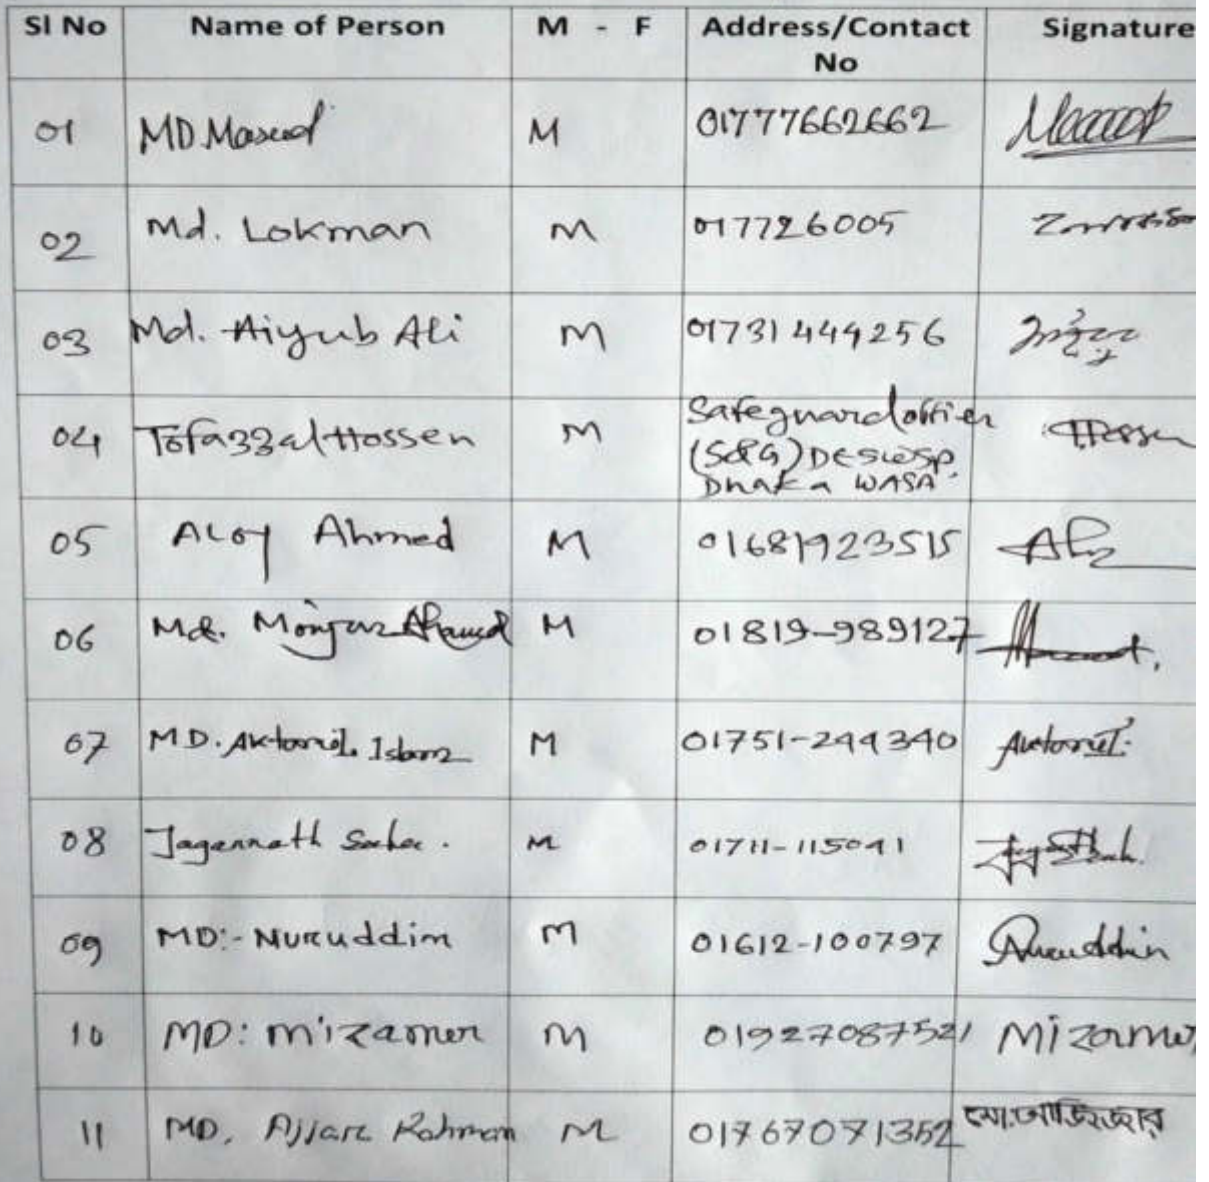 Sl No Name of Person M - F Address/Contact No Signature
01 MD. Masud M 01777662662
02 Md. Lokman M 017726005
03 Md. Aiyub Ali M 01731444256
04 Tofazzal Hossen M Safeguard officer
(S&G) DESWSP,
Dhaka WASA. Hossen
05 ALoy Ahmed M 01681923515
06 Md. Monjur Ahamed M 01819-989127
07 MD. Aktarul Islam M 01751-244340 Aktarul
08 Jagannath Saha. M 01711-115041
09 MD:- Nuruddim M 01612-100797 Nuruddin
10 MD: Mizamer M 01927087521 Mizamer
11 MD, Ajjar Rahman M 01767071352 মো: আজিজার